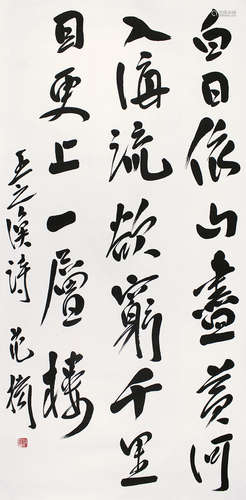 白日依山盡黃河
入海流欲窮千里
目更上一層樓
王之渙詩